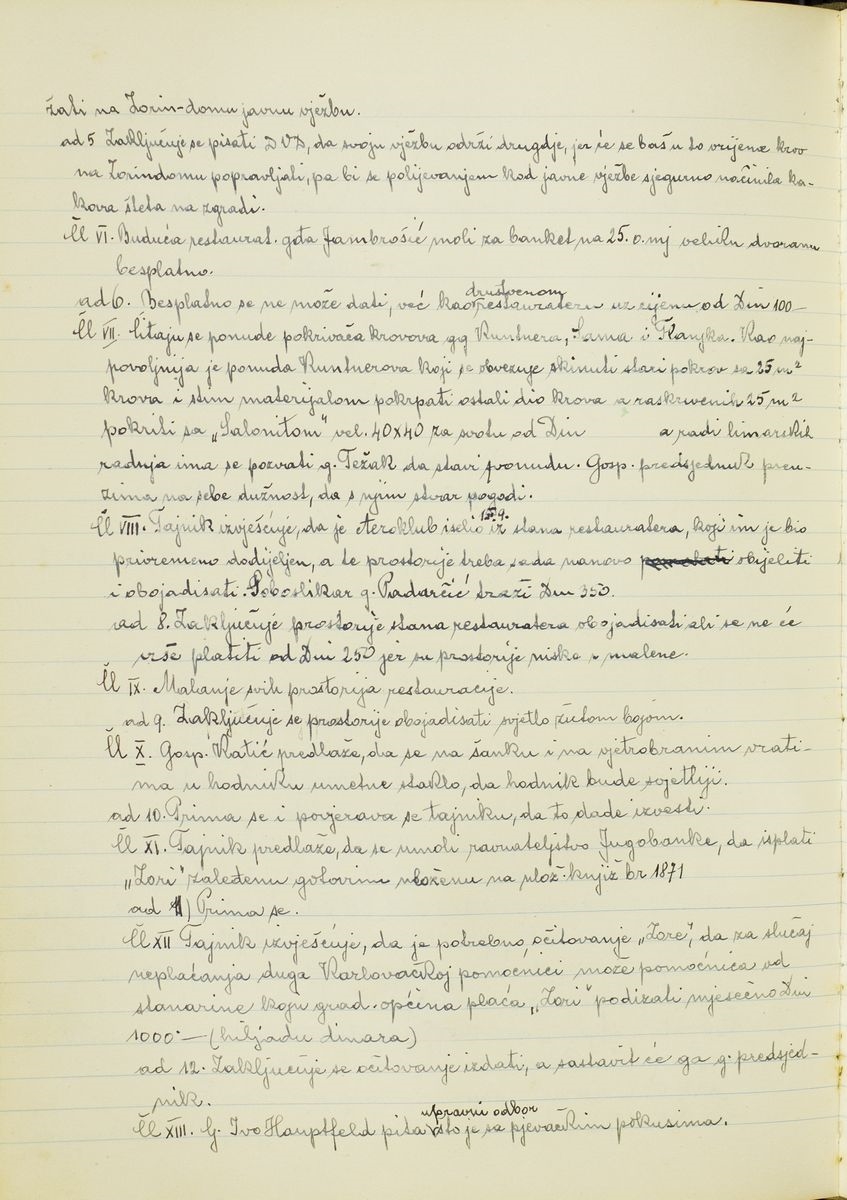 žati na Zorin-domu javnu vježbu.
ad 5 Zaključuje se pisati DVD, da svoju vježbu održi drugdje, jer će se baš u to vrijeme krov
na Zorindomu popravljati, pa bi se polijevanjem kod javne vježbe sjegurno načinila ka-
kova šteta na zgradi.
Čl VI. Buduća restaurat. gđa Jambrošić moli za banket na 25. o. mj veliku dvoranu
besplatno.
ad 6. Besplatno se ne može dati, već kao društvenom restaurateru uz cijenu od Din 100—
Čl VII. Čitaju se ponude pokrivača krovova gg Kuntnera, Sama i Franjka. Kao naj-
povoljnija je ponuda Kuntnerova koji se obvezuje skinuti stari pokrov sa 25 m²
krova i stim materijalom pokrpati ostali dio krova a raskrivenih 25 m²
pokriti sa „Salonitom" vel. 40x40 za svotu od Din a radi limarskih
radnja ima se pozvati g. Težak da stavi ponudu. Gosp. predsjednik preu-
zima na sebe dužnost, da s njim stvar pogodi.
Čl VIII. Tajnik izvješćuje, da je Aeroklub iselio 15.9. iz stana restauratera, koji im je bio
privremeno dodijeljen, a te prostorije treba sada nanovo obijeliti
i obojadisati. Soboslikar g. Radarčić traži Din 350.
ad 8. Zaključuje prostorije stana restauratera obojadisati ali se ne će
više platiti od Din 250 jer su prostorije niske i malene.
Čl IX. Malanje svih prostorija restauracije.
ad 9. Zaključuje se prostorije obojadisati svjetlo žutom bojom.
Čl X. Gosp. Katić predlaže, da se na šanku i na vjetrobranim vrati-
ma u hodniku umetne staklo, da hodnik bude svjetliji.
ad 10. Prima se i povjerava se tajniku, da to dade izvesti.
Čl XI. Tajnik predlaže, da se umoli ravnateljstvo Jugobanke, da isplati
„Zori" zaleđenu gotovinu uloženu na ulož. knjiž br 1871
ad 11) Prima se.
Čl XII Tajnik izvješćuje, da je potrebno očitovanje „Zore", da za slučaj
neplaćanja duga Karlovačkoj pomoćnici može pomoćnica od
stanarine koju grad. općina plaća „Zori" podizati mjesečno Din
1000·— (hiljadu dinara)
ad 12. Zaključuje se očitovanje izdati, a sastavit će ga g. predsjed-
nik.
Čl XIII. G. Ivo Hauptfeld pita upravni odbor što je sa pjevačkim pokusima.